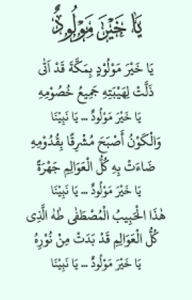 يَا خَيْرَ مَوْلُودٌ
يَا خَيْرَ مَوْلُوْدٍ بِمَكَّةَ قَدْ اَتٰى
ذَلَّتْ لِهَيْبَتِهِ جَمِيعُ خُصُوْمِهِ
يَا خَيْرَ مَوْلُودٌ ... يَا نَبِيْنَا
وَالْكَوْنُ أَصْبَحَ مُشْرِقًا بِقُدُوْمِهِ
ضَاءَتْ بِهِ كُلُّ الْعَوَالِمِ جَهْرَةً
يَا خَيْرَ مَوْلُودٌ ... يَا نَبِيْنَا
هٰذَا الْحَبِيبُ الْمُصْطَفٰى طٰهَ الَّذِى
كُلُّ الْعَوَالِمِ قَدْ بَدَتْ مِنْ نُوْرِهِ
يَا خَيْرَ مَوْلُودٌ ... يَا نَبِيْنَا